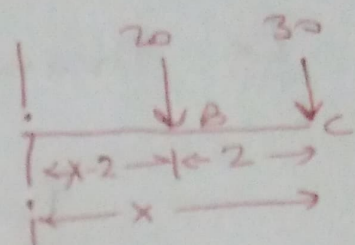 20 30
B C
x-2 2
x